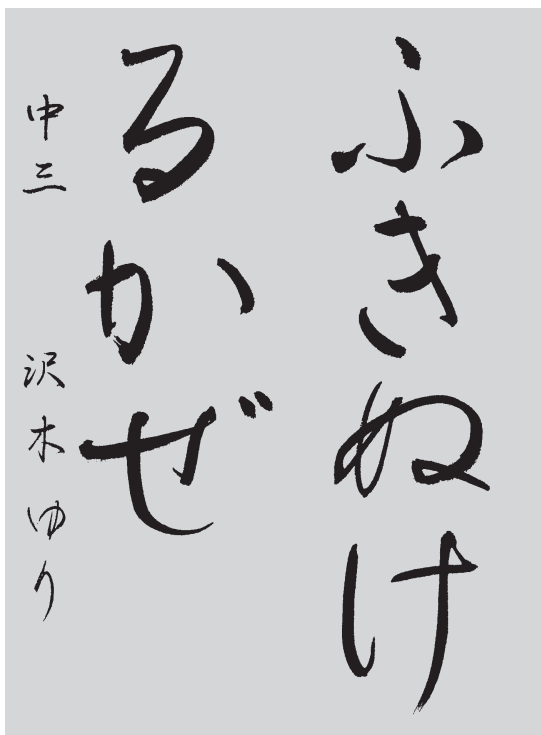 ふきぬけ
るかぜ
中三 沢木ゆり